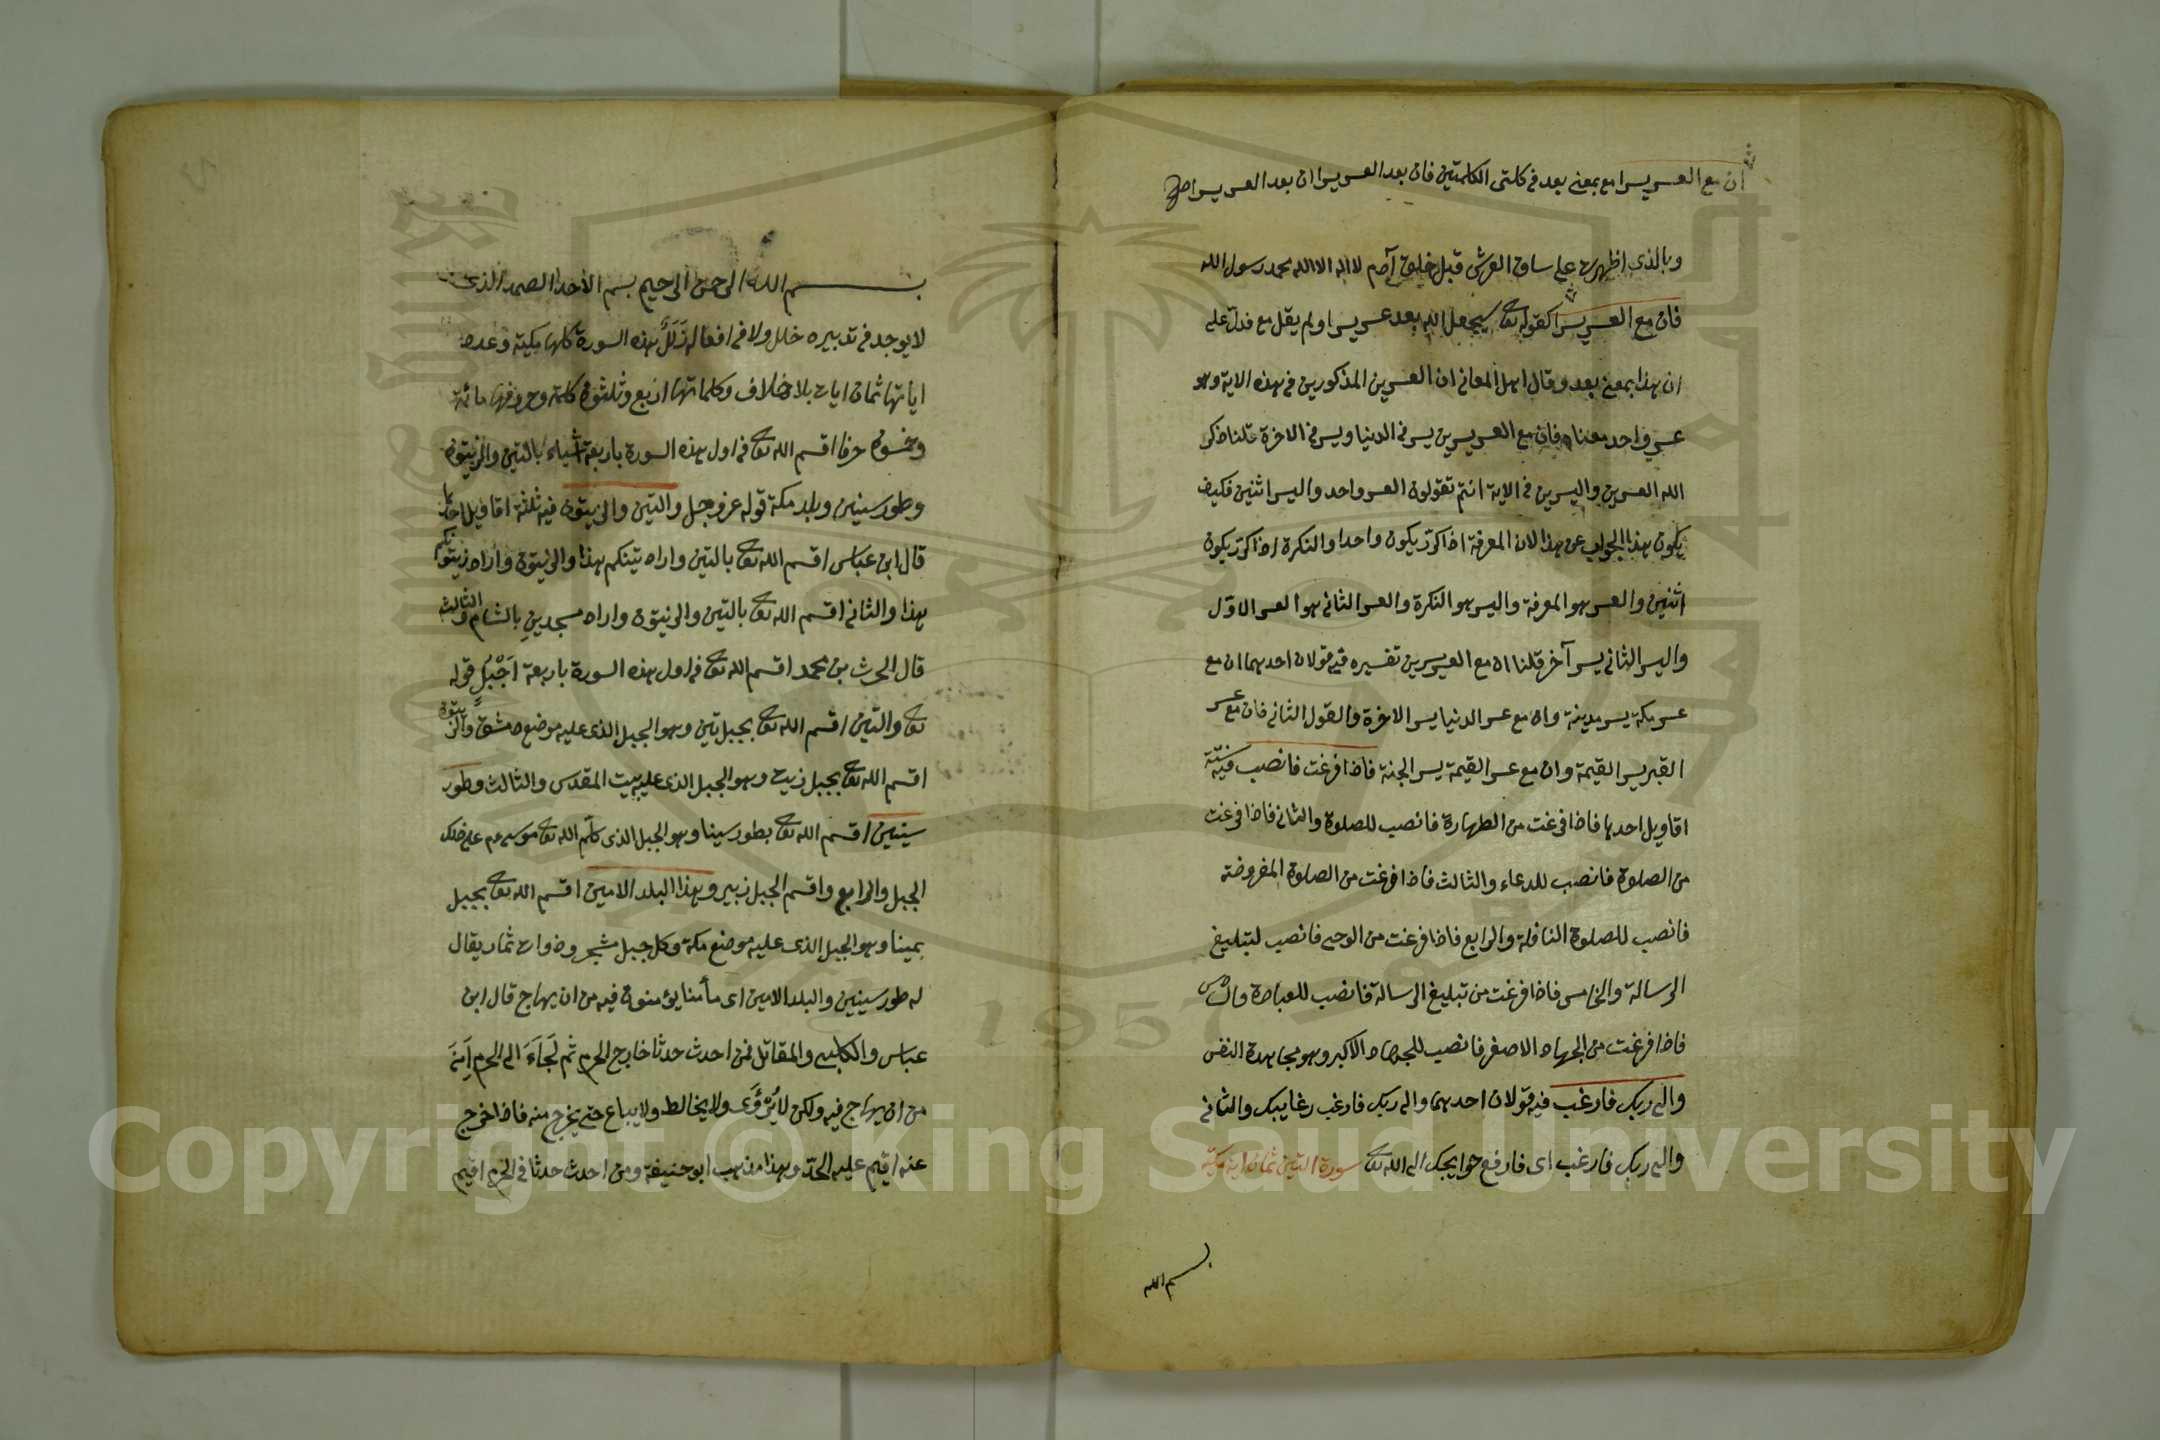 ان مع العسر يسرا مع بمعنى بعد في كلتى الكلمتين فان بعد العسر يسرا ان بعد العسر يسرا صح
وبالذى اظهرت على ساق العرش قبل خلق آدم لا اله الا الله محمد رسول الله
فان مع العسر يسرا كقوله تعالى سيجعل الله بعد عسر يسرا ولم يقل مع فدل على
ان هذا بمعنى بعد وقال اهل المعانى ان العسرين المذكورين في هذه الاية وهو
عسر واحد معناه فان مع العسر يسرين يسر في الدنيا ويسر في الاخرة قلنا ذكر
الله العسرين واليسرين في الاية انتم تقولون العسر واحد واليسر اثنين فكيف
يكون هذا الجواب عن هذا لان المعرفة اذا كرّر يكون واحدا والنكرة اذا كرّر يكون
اثنين والعسر هو المعرفة واليسر هو النكرة والعسر الثانى هو العسر الاوّل
واليسر الثانى يسر آخر قلنا ان مع العسر يسرين تفسيره فيه قولان احدهما ان مع
عسر مكة يسر مدينة وان مع عسر الدنيا يسر الاخرة والقول الثانى فان مع عسر
القبر يسر القيمة وان مع عسر القيمة يسر الجنة فاذا فرغت فانصب فيه ستّة
اقاويل احدها فاذا فرغت من الطهارة فانصب للصلوة والثانى فاذا فرغت
من الصلوة فانصب للدعاء والثالث فاذا فرغت من الصلوة المفروضة
فانصب للصلوة النافلة والرابع فاذا فرغت من الوحى فانصب لتبليغ
الرسالة والخامس فاذا فرغت من تبليغ الرسالة فانصب للعبادة والسادس
فاذا فرغت من الجهاد الاصغر فانصب للجهاد الاكبر وهو مجاهدة النفس
والى ربك فارغب فيه قولان احدهما والى ربك فارغب رغايبك والثانى
والى ربك فارغب اى فارفع حوايجك الى الله تعالى سورة التين ثمان اية مكية
بسم الله
بسم الله الرحمن الرحيم بسم الاحد الصمد الذى
لا يوجد في تدبيره خلل ولا في افعاله زَلَلٌ هذه السورة كلها مكية وعدد
اياتها ثمان ايات بلا خلاف وكلماتها اربع وثلثون كلمة وحروفها مائة
وخمسون حرفا اقسم الله تعالى في اول هذه السورة باربعة اشياء بالتين والزيتون
وطور سينين وبلد مكة قوله عز وجل والتين والزيتون فيه ثلثة اقاويل احدها
قال ابن عباس اقسم الله تعالى بالتين واراد تينكم هذا والزيتون واراد زيتونكم
هذا والثانى اقسم الله تعالى بالتين والزيتون واراد مسجدين بالشام والثالث
قال الحرث بن محمد اقسم الله تعالى في اول هذه السورة باربعة اَجْبُلٍ قوله
تعالى والتين اقسم الله تعالى بجبل تين وهو الجبل الذى عليه موضع دمشق والزيتون
اقسم الله تعالى بجبل زيت وهو الجبل الذى عليه بيت المقدس والثالث وطور
سينين اقسم الله تعالى بطور سينا وهو الجبل الذى كلّم الله تعالى موسى عم على ذلك
الجبل والرابع واقسم الجبل زبير وهذا البلد الامين اقسم الله تعالى بجبل
يمينا وهو الجبل الذى عليه موضع مكة وكل جبل مشجر وذوات ثمار يقال
له طور سينين والبلد الامين اى مأمنا يؤمنون فيه من ان يهاج قال ابن
عباس والكلبى والمقاتل فمن احدث حدثا خارج الحرم ثم لَجَاءَ الى الحرم اَمِنَ
من ان يهاج فيه ولكن لا يُؤْوَى ولا يخالط ولا يباع حتى يخرج منه فاذا خرج
عنه اقيم عليه الحدّ وهذا مذهب ابو حنيفة ومن احدث حدثا في الحرم اقيم
Copyright © King Saud University
1957